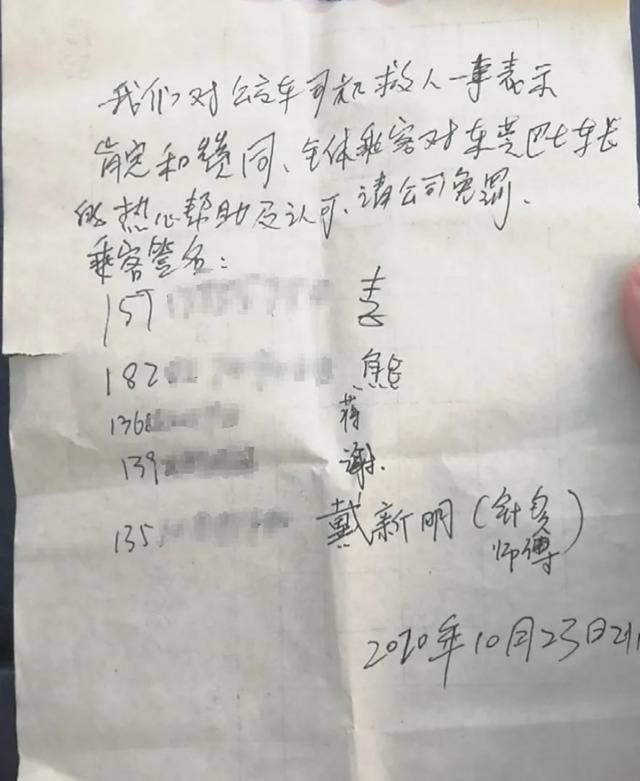 我们对公交车司机救人一事表示
肯定和赞同、全体乘客对东莞巴士车长
的热心帮助及认可、请公司免罚、
乘客签名：
157
182 熊
1368 蒋
139 谢.
135 戴新明（针灸
师傅）
2020年10月23日21